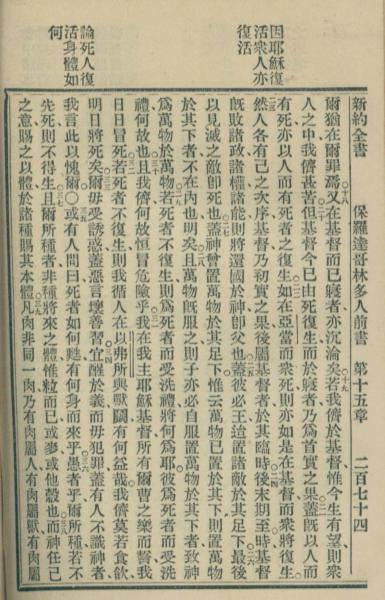 因耶穌復
活衆人亦
復活
論死人復
活身體如
何
新約全書 保羅達哥林多人前書 第十五章 二百七十四
爾猶在爾罪焉又在基督而已寢者亦沉淪矣若我儕於基督惟今生有望則衆
人之中我儕甚苦但基督今已由死復生而於寢者乃爲首實之果蓋既以人而
有死亦以人而有死者之復生如在亞當而衆死則亦如是在基督而衆將復生
然人各有己之次序基督乃初實之果後屬基督者於其臨時後末期至時基督
既敗諸政諸權諸能則將還國於神卽父也蓋彼必王迨置諸敵於其足下最後
以見滅之敵卽死也蓋神曾置萬物於其足下惟云萬物已置於其下則置萬物
於其下者不在內也明矣且萬物既服之則子亦必自服置萬物於其下者致神
爲萬物於萬物若死者不復生則爲死者而受洗禮將何爲耶彼爲死者而受洗
禮何故也且我儕何故恒冒危險乎我在我主耶穌基督所有爾曹之樂而誓我
日日冒死若死者不復生則我循人在以弗所與獸鬬有何益哉我儕莫若食飲
明日將死矣爾毋受誘惑蓋惡言壞善習宜醒於義而毋犯罪蓋有人不識神者
我言此以愧爾〇或有人問曰死者如何甦有何身而來乎愚者乎爾所種若不
先死則不得生且爾所種者非種將來之體惟粒而已或麥或他穀也而神任己
之意賜之以體於諸種賜其本體凡肉非同一肉乃有肉屬人有肉屬獸有肉屬